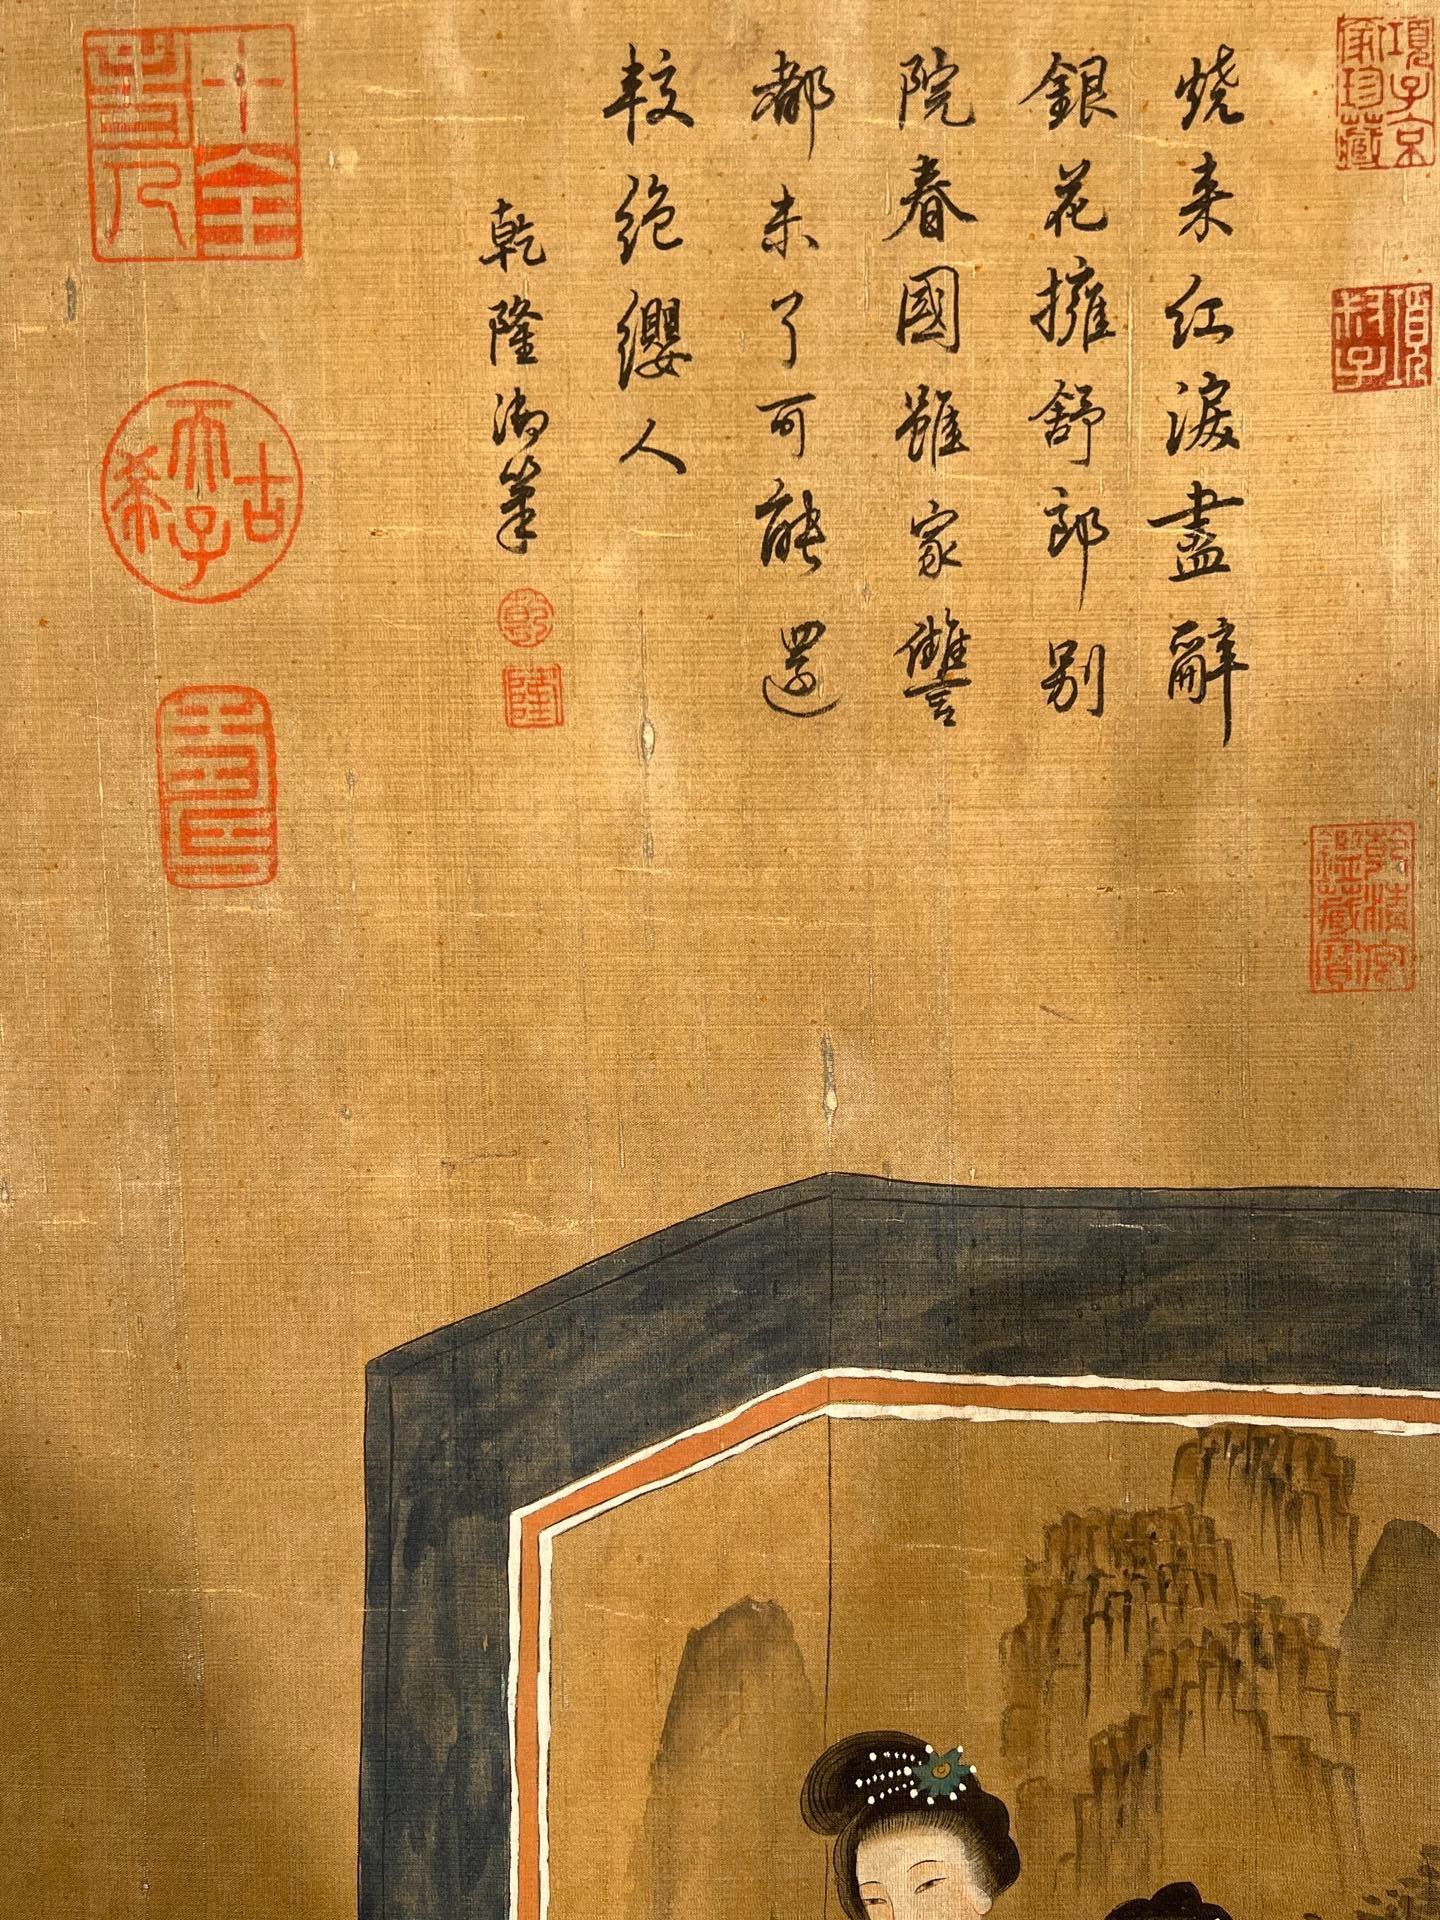 項子京家珍藏
項叔子
乾清宮鑑藏寶
燒来紅淚盡辭
銀花擁舒郎别
院春國雖家讐
都未了可能還
較絕纓人
乾隆御筆
乾
隆
十全老人
古希天子
壽